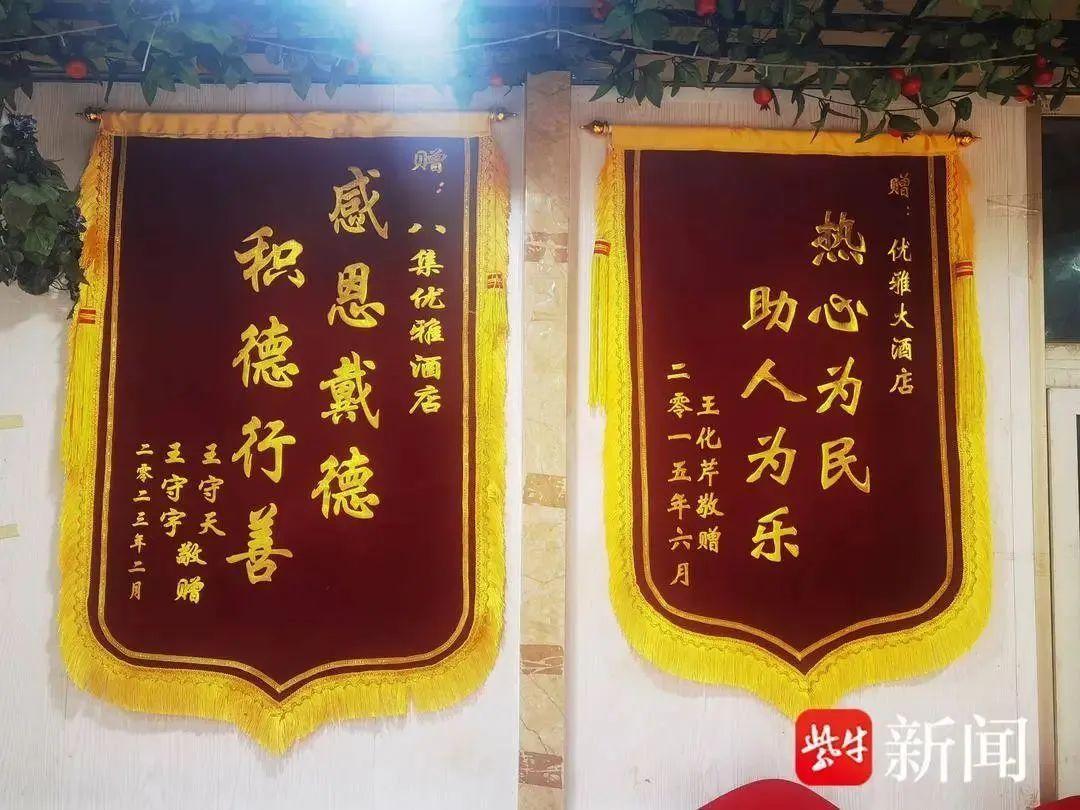 赠：八集优雅酒店
感恩戴德
积德行善
王守天
王守宇敬赠
二零二三年二月
赠：优雅大酒店
热心为民
助人为乐
王化芹敬赠
二零一五年六月
紫牛新闻